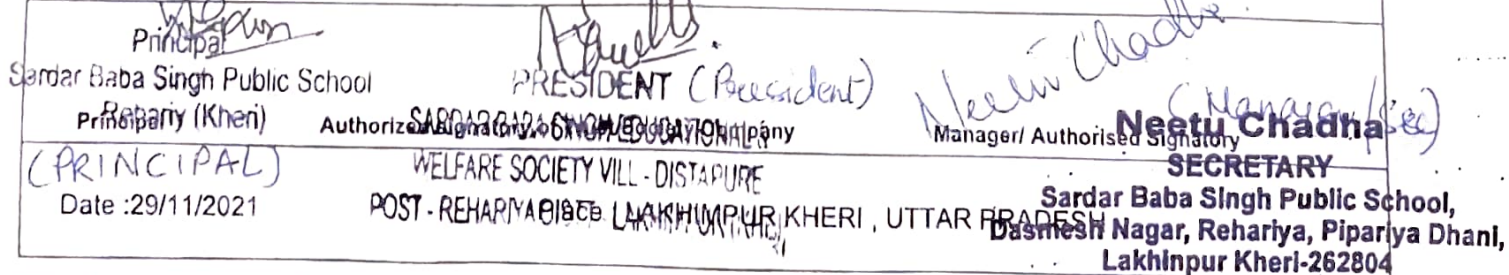 Principal
Sardar Baba Singh Public School
Rehariy (Kheri)
Principal
(PRINCIPAL)
Date :29/11/2021
PRESIDENT (President)
SARDAR BABA SINGH EDUCATIONAL
Authorized Signatory of
WELFARE SOCIETY VILL - DISTAPURE
POST - REHARIYA
LAKHIMPUR KHERI , UTTAR PRADESH
Neetu Chadha
(Manager/Sec)
Manager/ Authorised Signatory
Neetu Chadha
SECRETARY
Sardar Baba Singh Public School,
Dasmesh Nagar, Rehariya, Pipariya Dhani,
Lakhinpur Kheri-262804